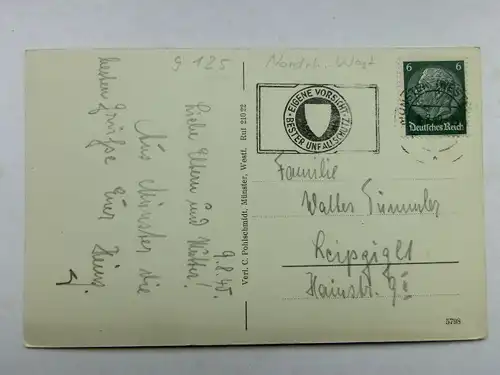 9 125
Nordrh. Westf
9.8.40.
Liebe Eltern und Mutter!
Aus Münster die
besten Grüße Euer
Heinz.
Verl. C. Pohlschmidt, Münster, Westf. Ruf 210 22
EIGENE VORSICHT
BESTER UNFALLSCHUTZ
MÜNSTER (WESTF)
6 6
Deutsches Reich
Familie
Walter Dümmler
Leipzig
Hainstr.
5798